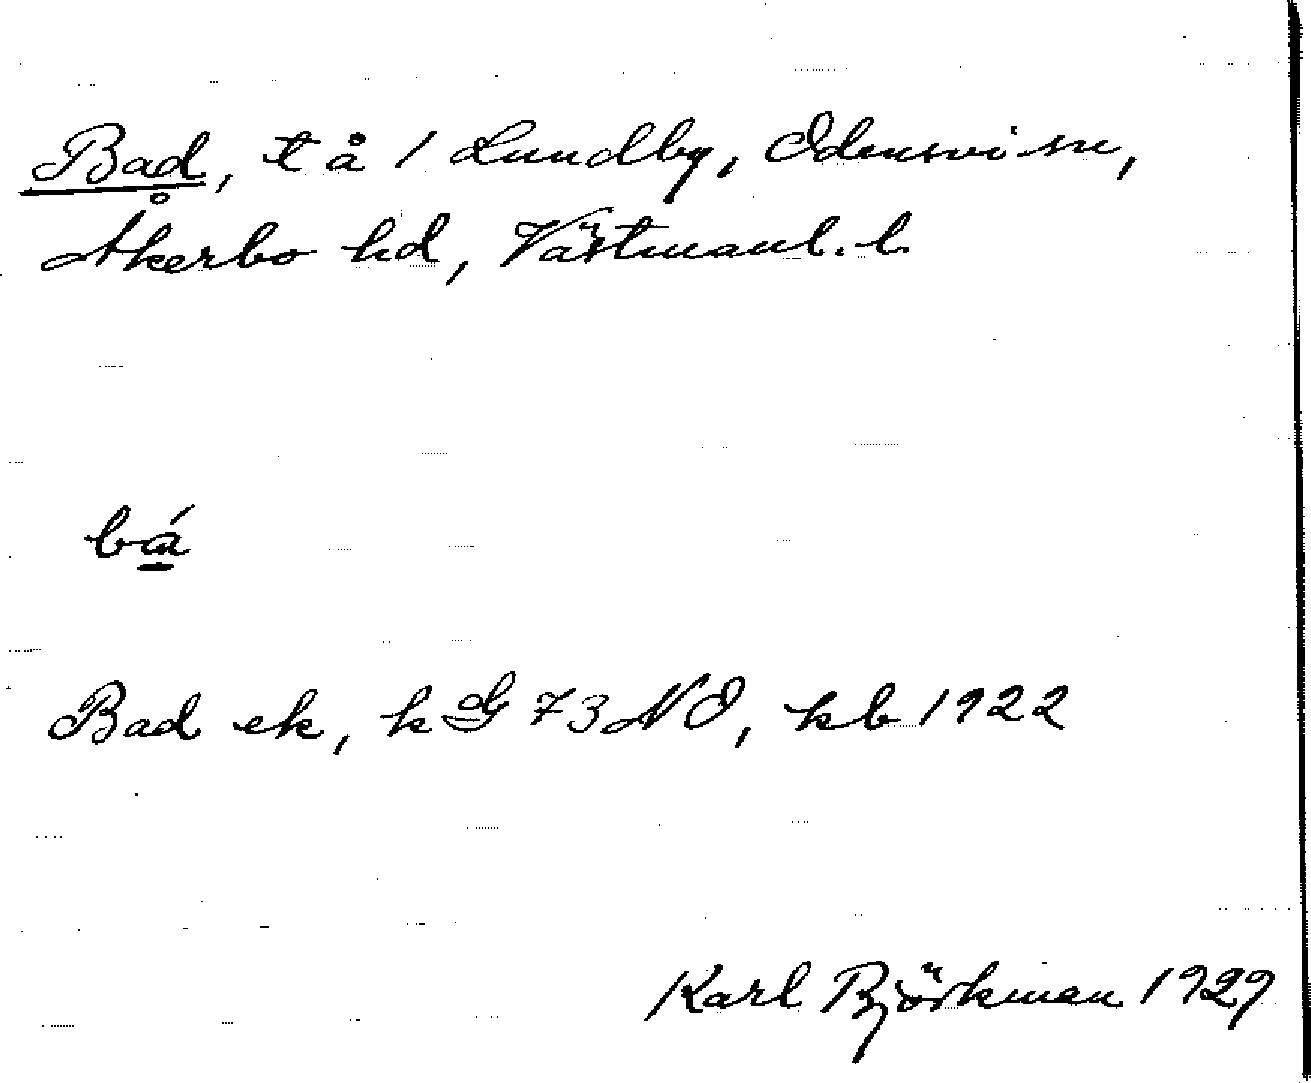 Bad, t å / Lundby, Odensvi sn,
Åkerbo hd, Västmanl. l.
bá
Bad ek, k G 73 NO, kb 1922
Karl Björkman 1929